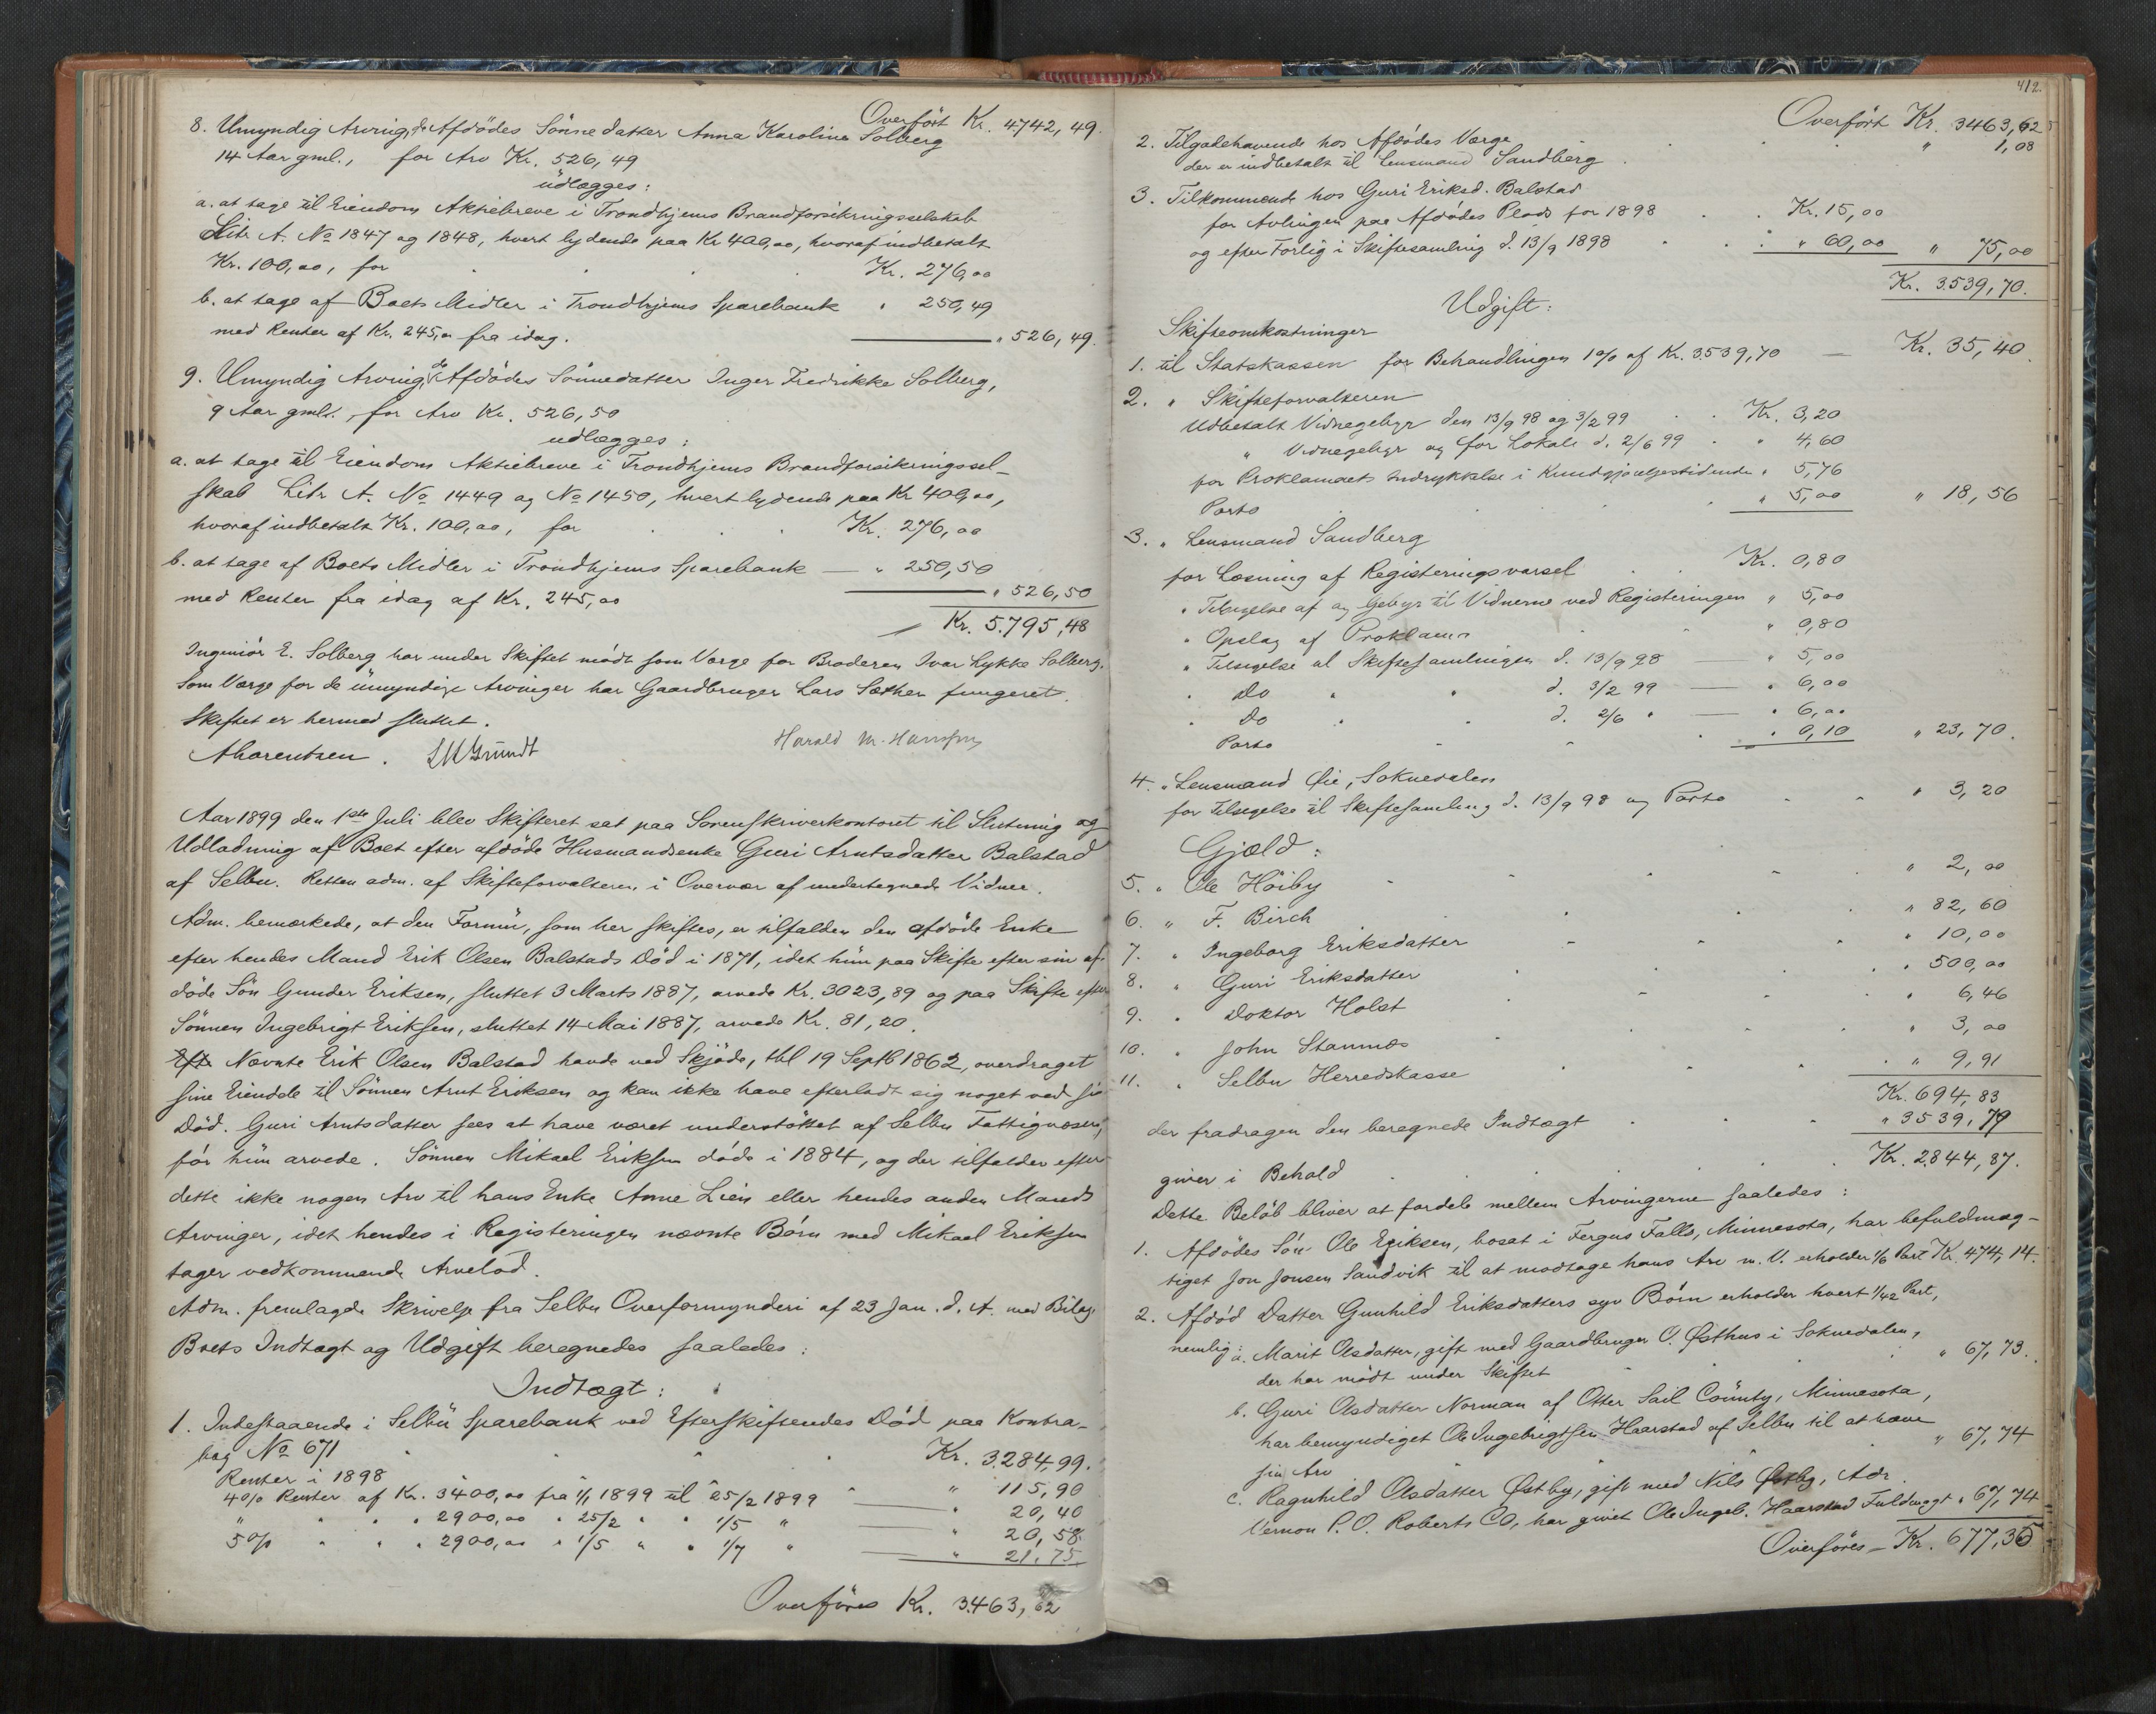 Overført Kr. 4742,49.
8. Umyndig Arving, Afdødes Sønnedatter Anna Karoline Solberg
14 Aar gml., for Arv Kr. 526,49
udlægges:
a. at tage til Eiendom Aktiebreve i Trondhjems Brandforsikringsselskab
Litr A. No 1847 og 1848, hvert lydende paa Kr 400,00, hvoraf indbetalt
Kr. 100,00, for . . . Kr. 276,00
b. at tage af Boets Midler i Trondhjems Sparebank " 250,49
med Renter af Kr. 245,00 fra idag. " 526,49.
9. Umyndig Arving, Afdødes Sønnedatter Inger Fredrikke Solberg,
9 Aar gml., for Arv Kr. 526,50
udlægges:
a. at tage til Eiendom Aktiebreve i Trondhjems Brandforsikringssel-
skab Litr A. No 1449 og No 1450, hvert lydende paa Kr 400,00,
hvoraf indbetalt Kr. 100,00, for . . . Kr. 276,00
b. at tage af Boets Midler i Trondhjems Sparebank — " 250,50
med Renter fra idag af Kr. 245,00 " 526,50
Kr. 5.795,48
Ingeniør E. Solberg har under Skiftet mødt som Værge for Broderen Ivar Lykke Solberg.
Som Værge for de umyndige Arvinger har Gaardbruger Lars Sæther fungeret.
Skiftet er hermed sluttet.
Harald M. Hansen
Aar 1899 den 1ste Juli blev Skifteret sat paa Sorenskriverkontoret til Slutning og
Udlodning af Boet efter afdøde Husmandsenke Guri Arntsdatter Balstad
af Selbu. Retten adm. af Skifteforvalteren i Overvær af undertegnede Vidner.
Adm. bemærkede, at den Formue, som her skiftes, er tilfalden den afdøde Enke
efter hendes Mand Erik Olsen Balstads Død i 1871, idet hun paa Skifte efter sin af-
døde Søn Gunder Eriksen, sluttet 3 Marts 1887, arvede Kr. 3023,89 og paa Skifte efter
Sønnen Ingebrigt Eriksen, sluttet 14 Mai 1887, arvede Kr. 81,20.
Efte Nævnte Erik Olsen Balstad havde ved Skjøde, tbl 19 Septb 1862, overdraget
sine Eiendele til Sønnen Arnt Eriksen og kan ikke have efterladt sig noget ved sin
Død. Guri Arntsdatter sees at have været understøttet af Selbu Fattigvæsen,
før hun arvede. Sønnen Mikael Eriksen døde i 1884, og der tilfalder efter
dette ikke nogen Arv til hans Enke Anne Lien eller hendes anden Mands
Arvinger, idet hendes i Registeringen nævnte Børn med Mikael Eriksen
tager vedkommende Arvelod.
Adm. fremlagde Skrivelse fra Selbu Overformynderi af 23 Jan. d. A. med Bilag
Boets Indtægt og Udgift beregnedes saaledes:
Indtægt:
1. Indestaaende i Selbu Sparebank ved Efterskiftendes Død paa Kontra-
bog No 671 Kr. 3.284,99.
Renter i 1898 " 115,90
4% Renter af Kr. 3400,00 fra 1/1 1899 til 25/2 1899 " 20,40
" " " 2900,00 " 25/2 " " 1/5 " " 20,58
5% " " " 2900,00 " 1/5 " " 1/7 " " 21,75
Overføres Kr. 3.463,62
412.
Overført Kr. 3463,62
2. Tilgodehavende hos Afdødes Værge
der er indbetalt til Lensmand Sandberg . . " 1,08
3. Tilkommende hos Guri Eriksd. Balstad
for Avlingen paa Afdødes Plads for 1898 . . Kr. 15,00
og efter Forlig i Skiftesamling d. 13/9 1898 . . " 60,00 " 75,00
Kr. 3.539,70.
Udgift:
Skifteomkostninger
1. til Statskassen for Behandlingen 1% af Kr. 3.539,70 — Kr. 35,40
2. " Skifteforvalteren
Udbetalt Vidnegebyr den 13/9 98 og 3/2 99 . . Kr. 3,20
" Vidnegebyr og for Lokale d. 2/6 99 . " 4,60
for Proklamaets Indrykkelse i Kundgjørelsestidende " 5,76
Porto . . " 5,00 " 18,56
3. " Lensmand Sandberg
for Læsning af Registeringsvarsel . . Kr. 0,80
" Tilsigelse af og Gebyr til Vidnerne ved Registeringen " 5,00
" Opslag af Proklama " 0,80
" Tilsigelse til Skiftesamlingen d. 13/9 98 — " 5,00
" Do " " d. 3/2 99 — " 6,00
" Do " " d. 2/6 " — " 6,00
Porto " 0,10 " 23,70.
4. " Lensmand Øie, Soknedalen
for Tilsigelse til Skiftesamling d. 13/9 98 og Porto " 3,20
Gjæld:
5. " Ole Høiby " 2,00
6. " F. Birch " 82,60
7. " Ingeborg Eriksdatter " 10,00
8. " Guri Eriksdatter " 500,00
9. " Doktor Holst " 6,46
10. " John Stamnæs " 3,00
11. " Selbu Herredskasse " 9,91
Kr. 694,83
der fradragen den beregnede Indtægt " 3539,79
giver i Behold Kr. 2.844,87.
Dette Beløb bliver at fordele mellem Arvingerne saaledes:
1. Afdødes Søn Ole Eriksen, bosat i Fergus Falls, Minnesota, har befuldmæg-
tiget Jon Jonsen Sandvik til at modtage hans Arv m. V. erholder 1/6 Part Kr. 474,14.
2. Afdød Datter Gunhild Eriksdatters syv Børn erholder hvert 1/42 Part,
nemlig: a. Marit Olsdatter, gift med Gaardbruger O. Østhus i Soknedalen,
der har mødt under Skiftet " 67,73.
b. Guri Olsdatter Norman af Otter Tail County, Minnesota,
har bemyndiget Ole Ingebrigtsen Haarstad af Selbu til at hæve
sin Arv " 67,74
c. Ragnhild Olsdatter Østby, gift med Nils Østby, Adr.
Vernon P.O. Roberts Co, har givet Ole Ingeb. Haarstad Fuldmagt " 67,74
Overføres – Kr. 677,35